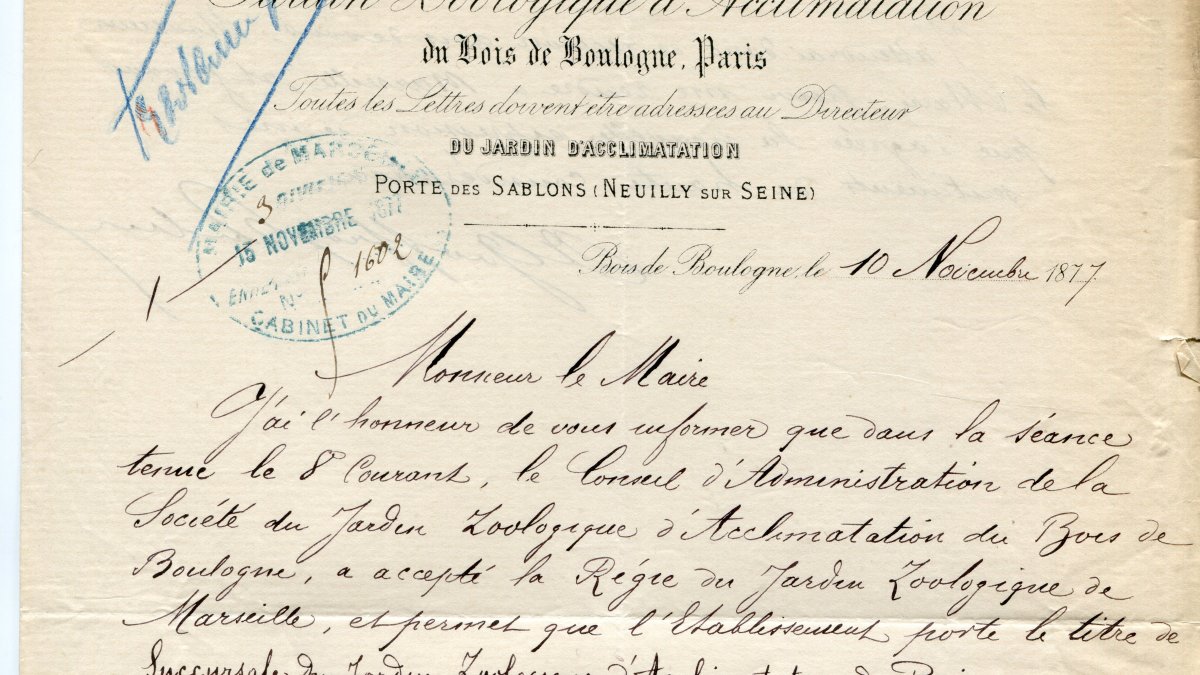 Jardin Zoologique d'Acclimatation
du Bois de Boulogne, Paris
Toutes les Lettres doivent être adressées au Directeur
DU JARDIN D'ACCLIMATATION
PORTE DES SABLONS (NEUILLY SUR SEINE)
MAIRIE de MARSEILLE
3
15 NOVEMBRE 1877
1602
No
CABINET DU MAIRE
Bois de Boulogne, le 10 Novembre 1877
Monsieur le Maire
J'ai l'honneur de vous informer que dans la séance
tenue le 8 Courant, le Conseil d'Administration de la
Société du Jardin Zoologique d'Acclimatation du Bois de
Boulogne, a accepté la Régie du Jardin Zoologique de
Marseille, et permet que l'Etablissement porte le titre de
Succursale du Jardin Zoologique d'Acclimatation de Paris